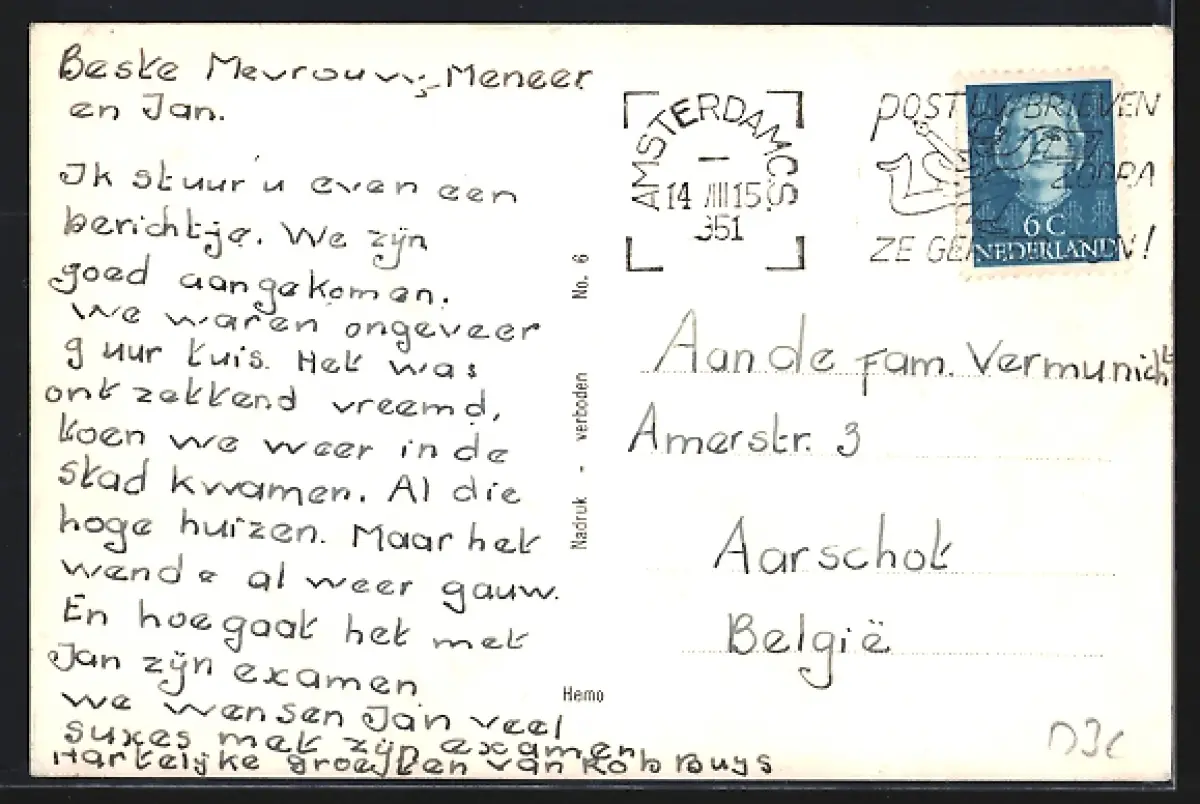 Beste Mevrouw, Meneer
en Jan.
Ik stuur u even een
berichtje. We zijn
goed aangekomen.
We waren ongeveer
9 uur tuis. Het was
ontzettend vreemd,
toen we weer in de
stad kwamen. Al die
hoge huizen. Maar het
wende al weer gauw.
En hoe gaat het met
Jan zijn examen
We wensen Jan veel
suxes met zijn examen
Hartelijke groejten van Rob Buys
Nadruk - verboden No. 6
Hemo
AMSTERDAM C.S.
14 VIII 15
951
POST UW BRIEVEN
ZODRA
ZE GE N!
6 C
NEDERLAND
Aan de Fam. Vermunicht
Amerstr. 3
Aarschot
België